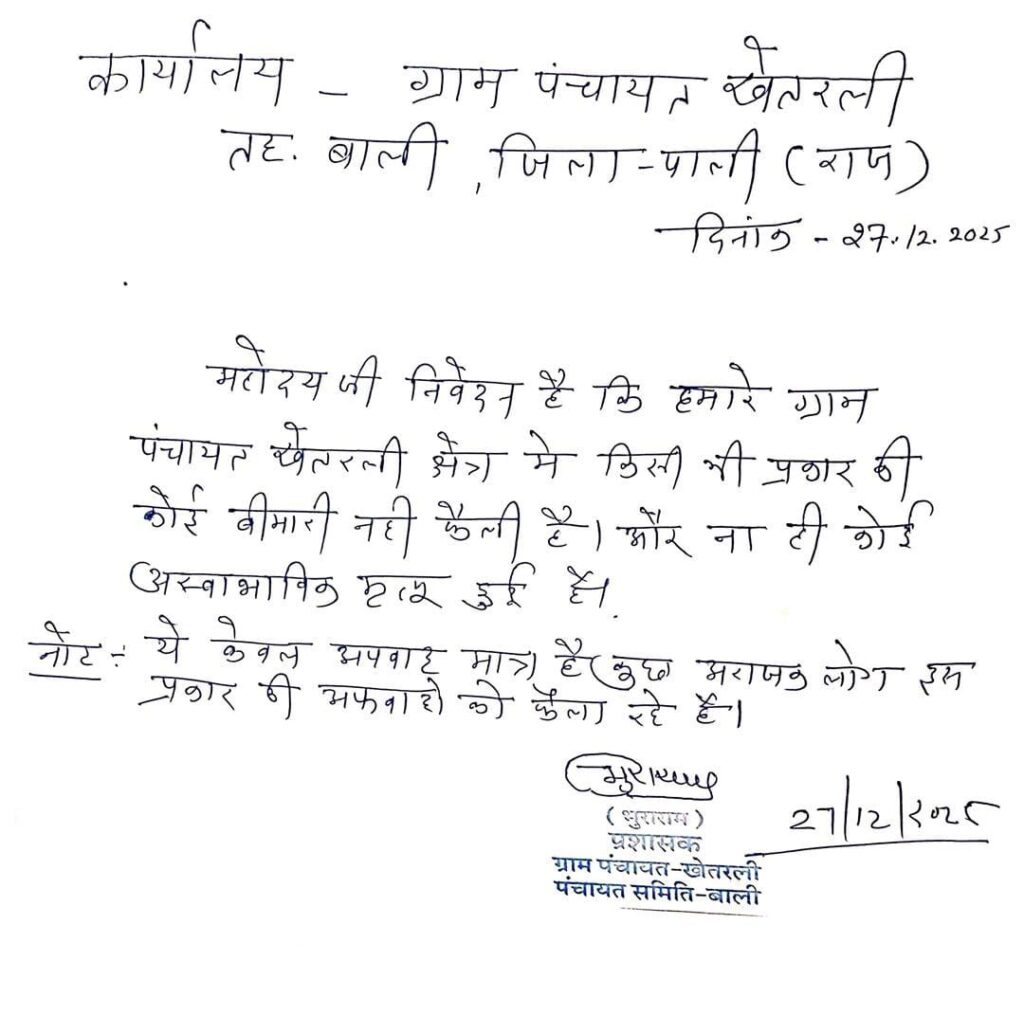 कार्यालय - ग्राम पंचायत खेतरली
तह. बाली, जिला-पाली (राज)
दिनांक - २7.12.2025
महोदय जी निवेदन है कि हमारे ग्राम
पंचायत खेतरली क्षेत्र मे किसी भी प्रकार की
कोई बीमारी नही फैली है। और ना ही कोई
अस्वाभाविक मृत्यू हुई हैं।
नोट :- ये केवल अपवाद मात्र है कुछ अराजक लोग इस
प्रकार की अफवाहो को फैला रहे हैं।
(भुराराम)
प्रशासक
27/12/२०२५
ग्राम पंचायत-खेतरली
पंचायत समिति-बाली